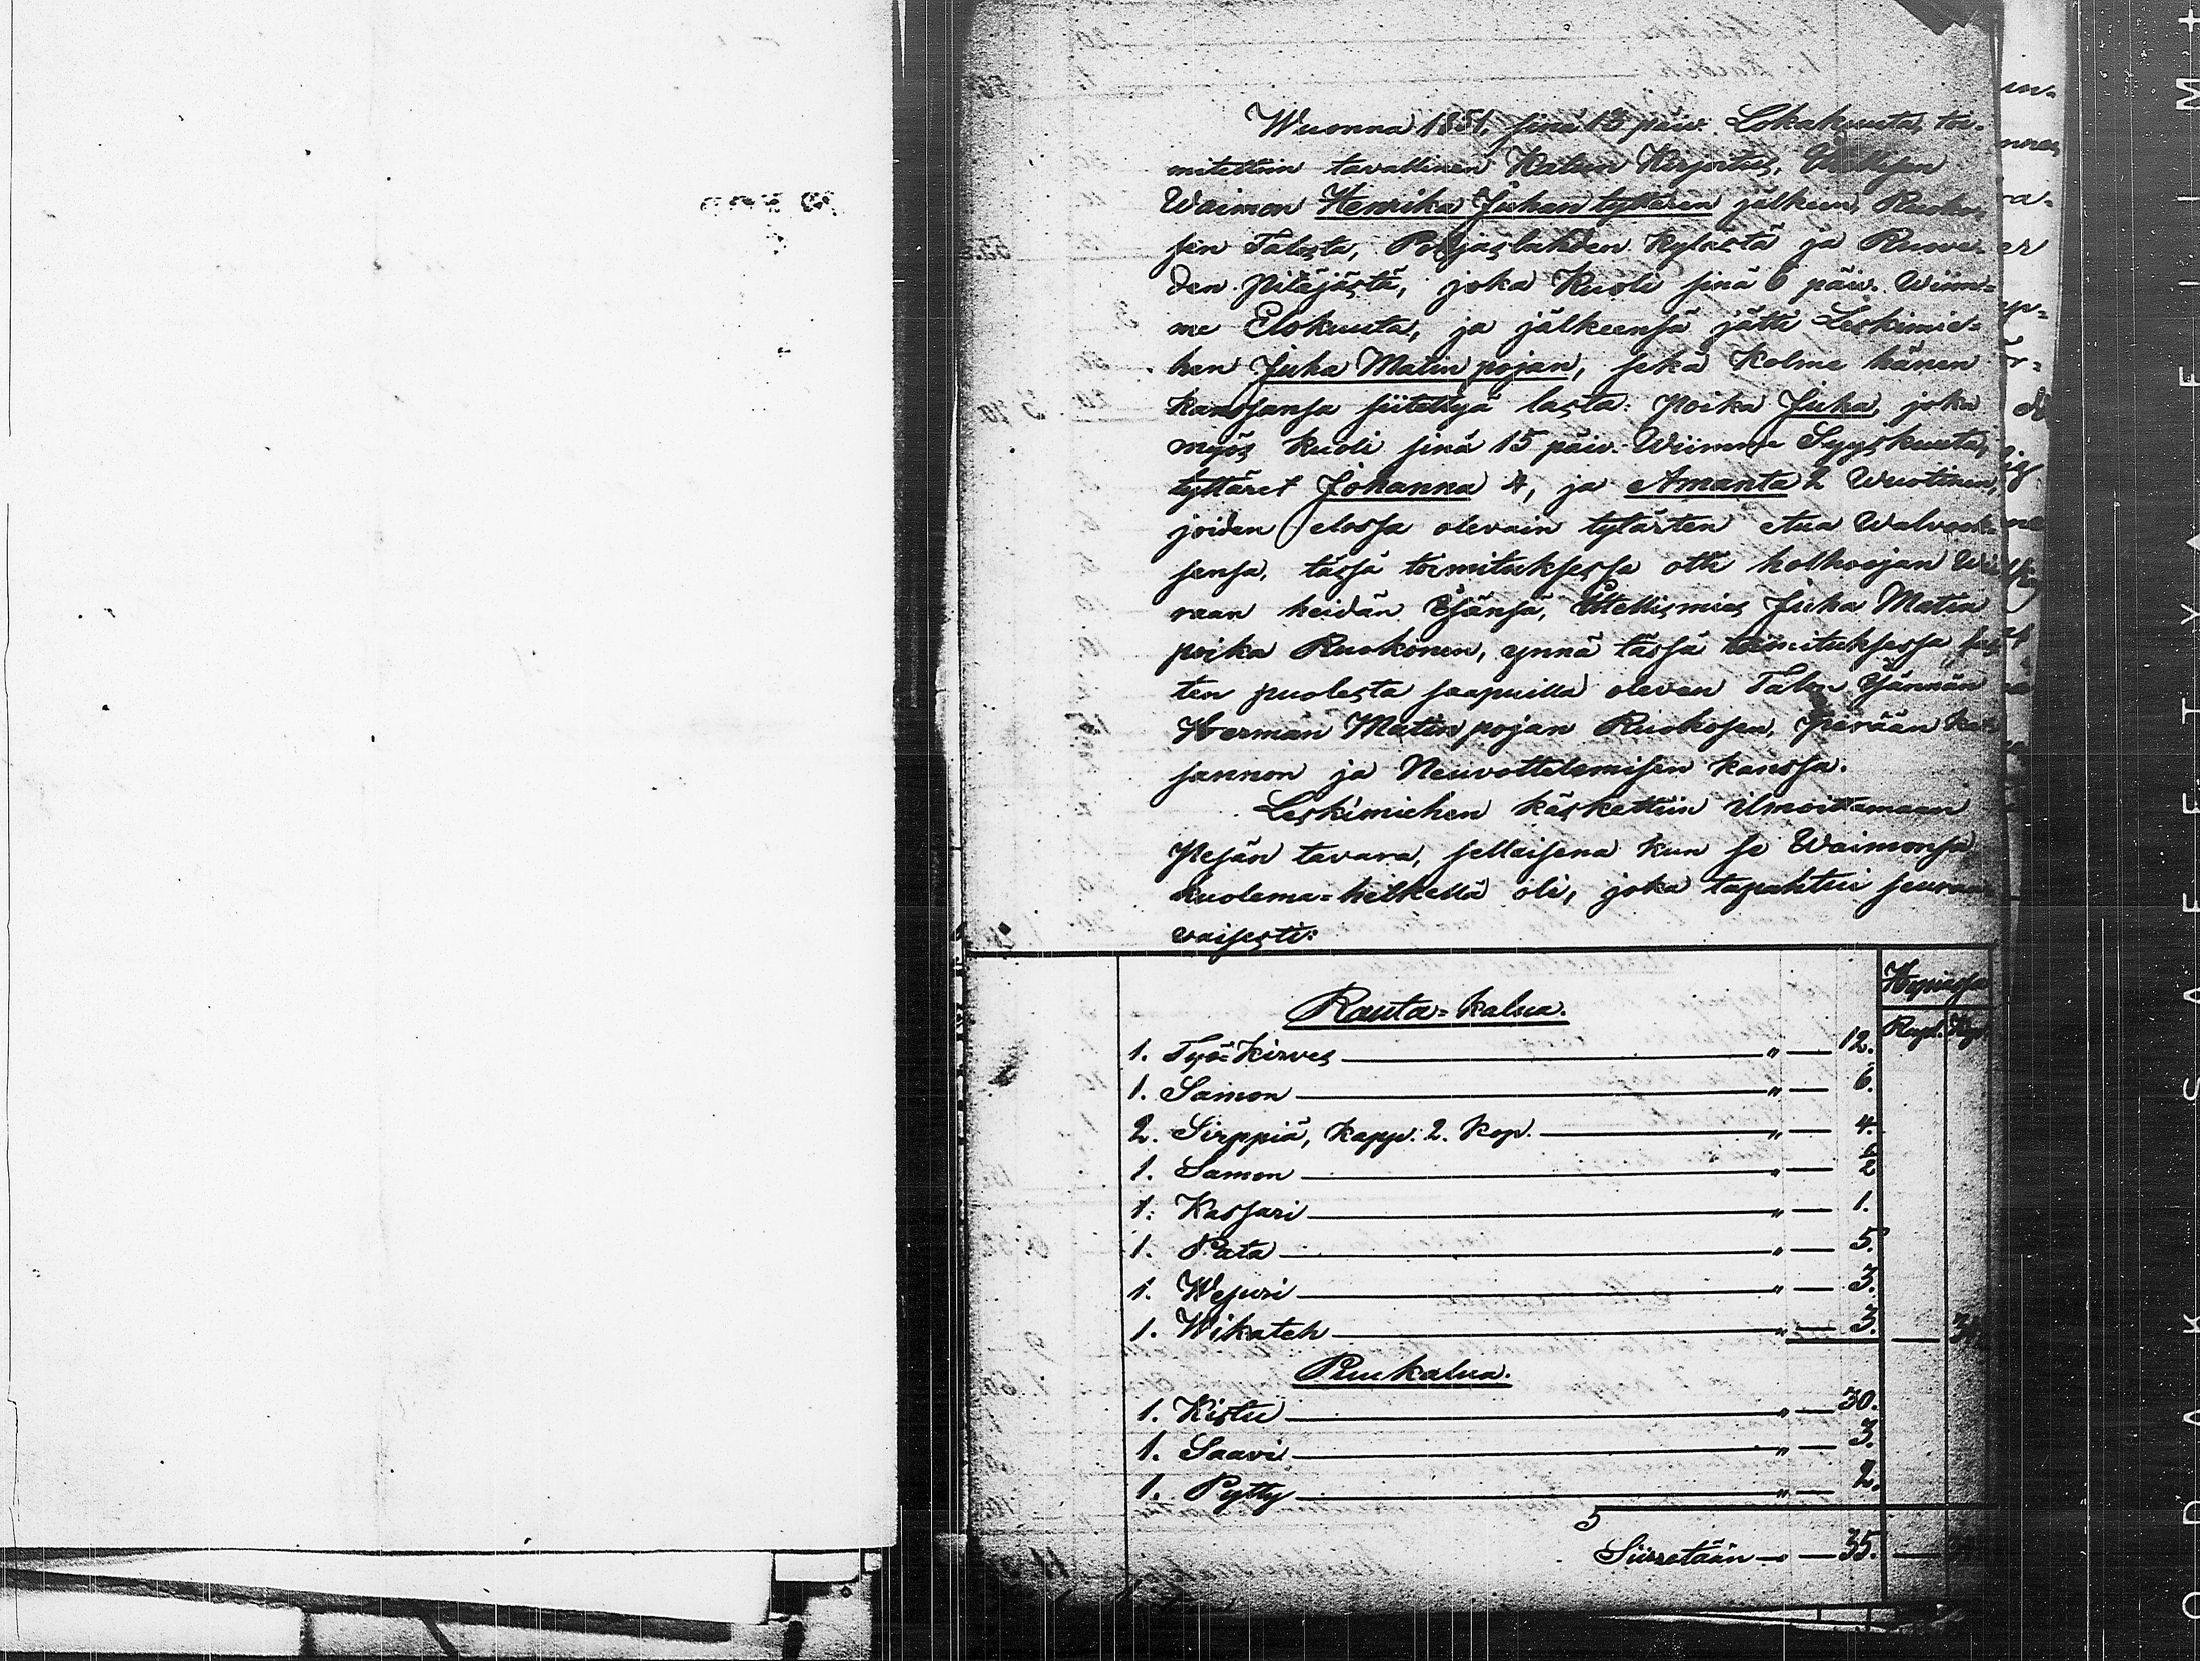 Wuonna 1851, sinä 13 päiv. Lokakuuta, toi-
mitettiin tavallinen Kalun Kirjoitus,
Waimon Henrika Juhan tyttären jälkeen, Ruoko-
sen Talosta, Pohjaslahden Kylästä ja Ruove-
den pitäjästä, joka Kuoli sinä 6 päiv. Wiim-
me Elokuuta, ja jälkeensä jätti Leskimie-
hen Juha Matin pojan, sekä Kolme hänen
kanssansa siitettyä lasta: poika Juha, joka
myös kuoli sinä 15 päiv. Wiimme Syyskuuta,
tyttäret Johanna 4, ja Amanta 2 Wuotinen,
joiden elossa olevain tytärten etua Walvoak-
sensa, tässä toimituksessa otti holhoojan Wi
raan heidän Isänsä, Itellismies Juha Matin
poika Ruokonen, ynnä tässä toimituksessa las
ten puolesta saapuilla olevan Talon Isännän
Herman Matin pojan Ruokosen, perään kat-
sannon ja Neuvottelemisen kanssa.
Leskimiehen käskettiin ilmoittamaan
Pesän tavara, sellaisena kun se Waimonsa
kuolema=hetkellä oli, joka tapahtui seuraa-
vaisesti:
Hopiassa
Rupl. Kop
Rauta=kalua.
1. Työ=Kirves — " — 12.
1. Samon — " — 6.
2. Sirppiä, kapp. 2. kop. — " — 4.
1. Samon — " —
1. Kassari — " — 1.
1. Pata — " — 5.
1. Wesuri — " — 3.
1. Wikateh — " — 3.
Puukalua.
1. Kistu — " — 30.
1. Saavi — " — 3.
1. Pytty — " — 2.
5
Siirretään — 35.